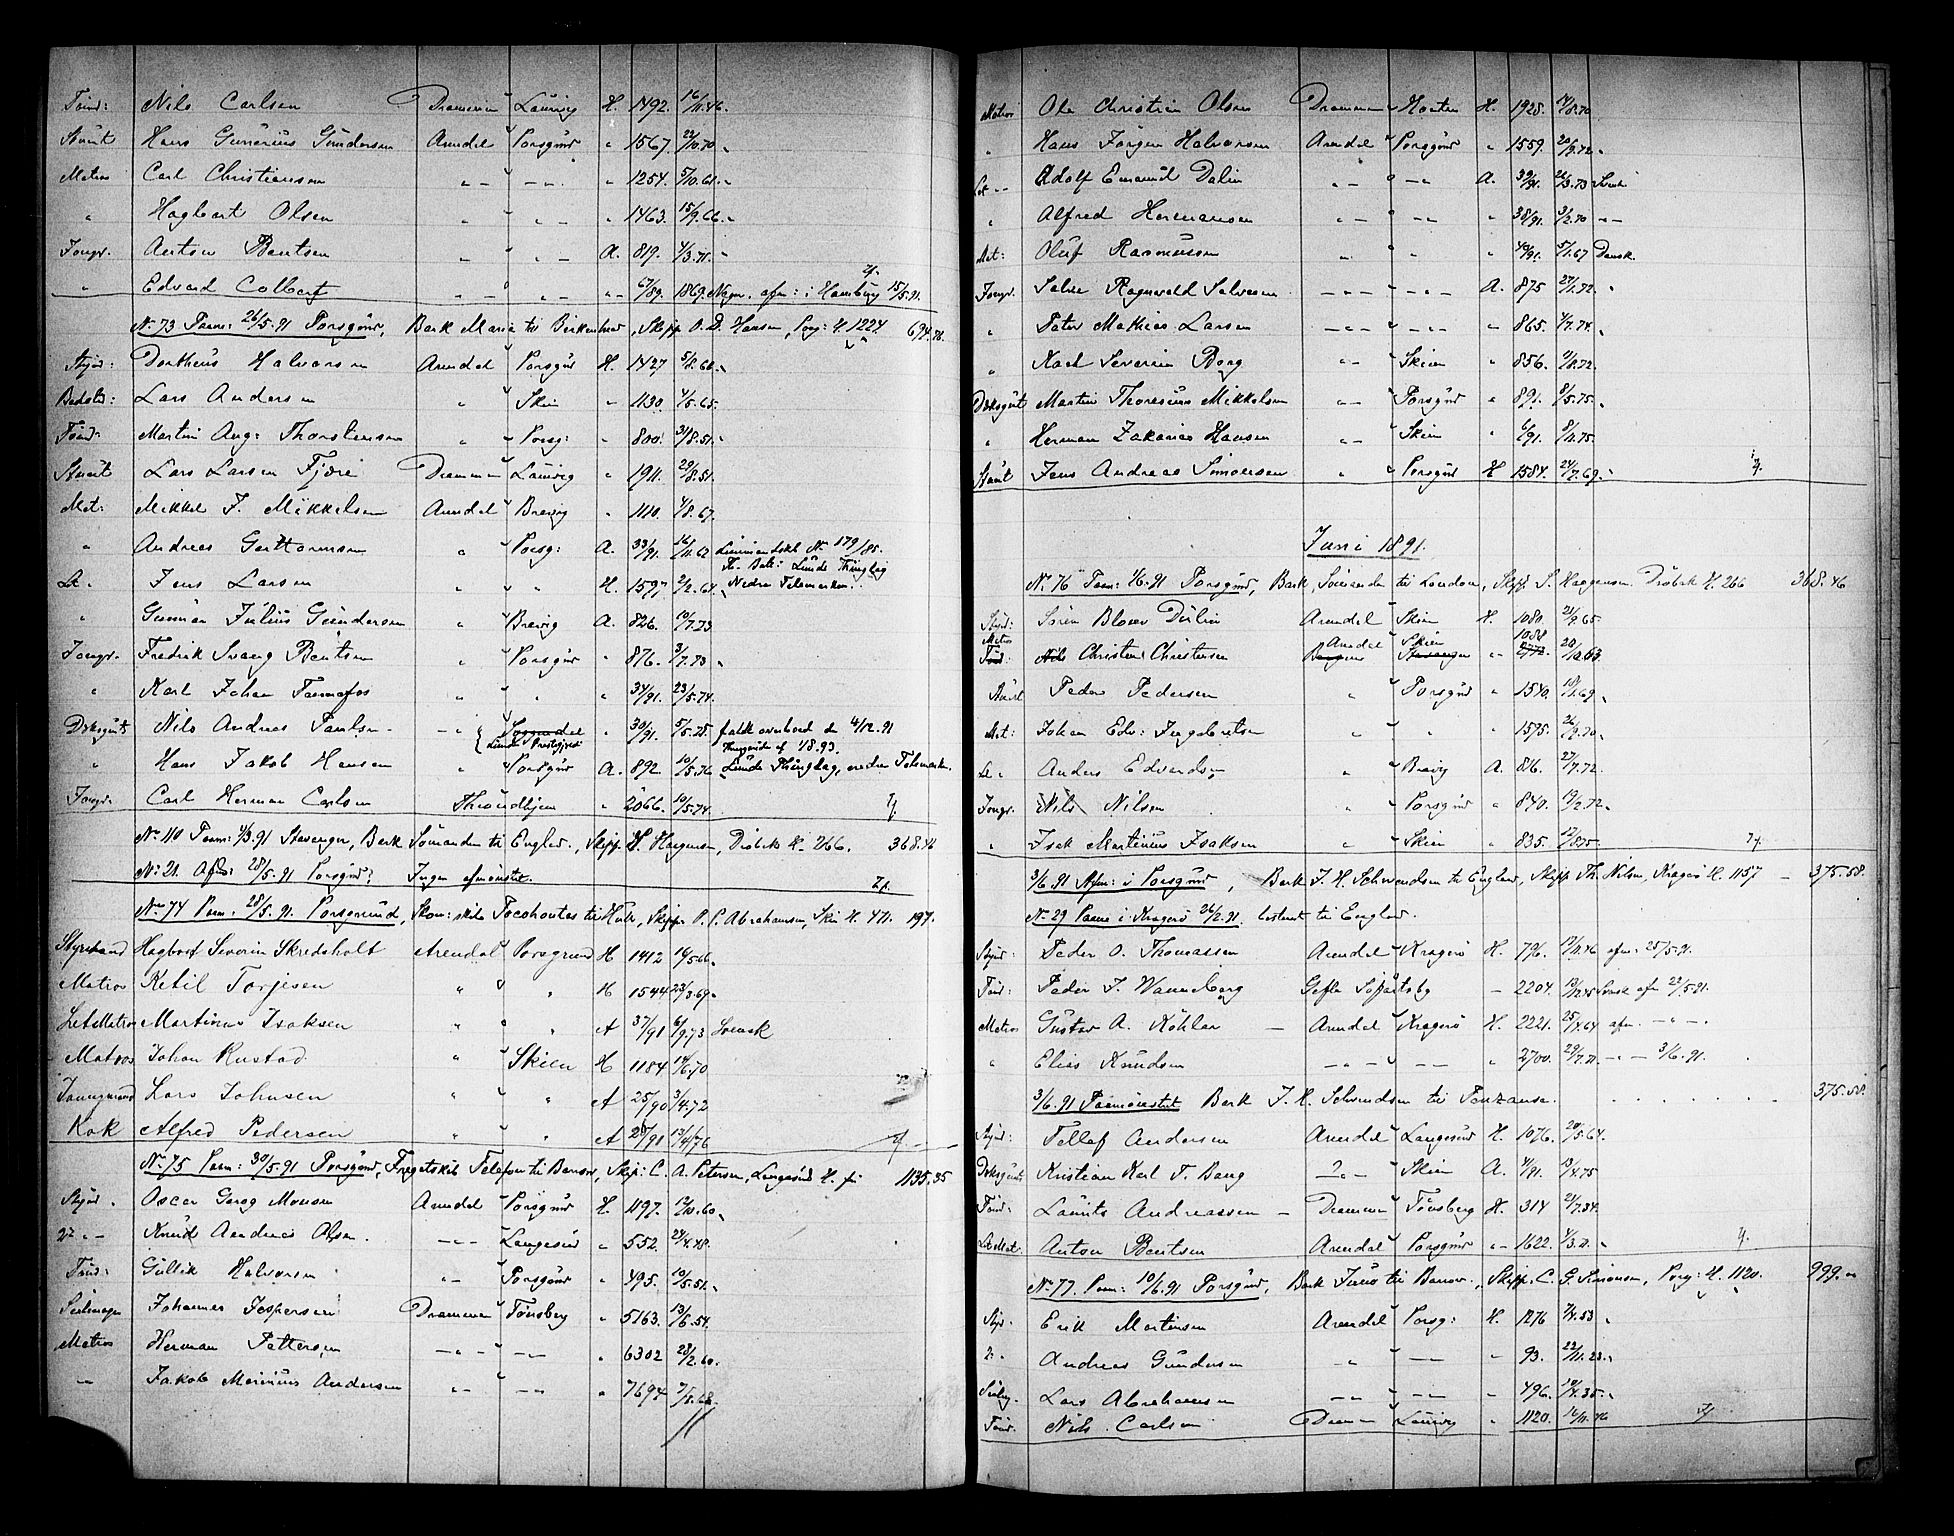 Tømd: Nils Carlsen Drammen Laurvig H. 1492. 16/11.46.
Stuert Hans Gunerius Gundersen Arendal Porsgrund " 1567. 22/10.70
Matros Carl Christiansen " – – " – " 1254. 5/10.61.
" Hagbart Olsen " – " – " 1463. 15/9.66.
Jongr. Anton Bentsen " " – A. 819. 4/3.71.
" Edvard Colbert 67/89. 1869. afm: i Hamburg 15/5.91.
No 73 Paam: 26/5.91 Porsgrund, Bark Maria til Birkenhead, Skipp O. D. Hansen, Porsg: H. 1224 694.76
Styrd: Dortheus Halvorsen Arendal Porsgrd H. 1427 5/8.66.
Baadsd: Lars Andersen " Skien " 1130. 4/5.65.
Tømd: Martin Aug: Thorstensen " Porsg: " 800. 31/8.51.
Stuert Lars Larsen Fjære Drammen Laurvig " 1911. 29/8.51.
Mat: Mikkel J. Mikkelsen Arendal Brevig " 1110. 4/8.67.
" Andreas Guttormsen " Porsg: A. 33/91. 16/11.62 No 179/85.
Let. Jens Larsen " " H. 1597 2/2.64. Lunde Thinglag Nedre Telemarken.
" Gunnar Julius Gundersen " Brevig A. 826. 10/7.73
Jongr. Fredrik Svang Bentsen " Porsgrund " 876. 3/7.73.
" Karl Johan Tommefos " " " 34/91. 23/5.74.
Dæksgut Nils Andreas Paulsen – " Lunde Præstegjeld 30/91. 5/5.75. faldt overbord den 4/12.91
" Hans Jakob Hansen " Porsgrund A. 892 10/5.76 Lunde Thinglag, nedre Telemarken.
Jongr. Carl Herman Carlsen Throndhjem " 2066. 10/5.74.
No 110 Paam: 4/3.91 Stavanger, Bark Sømanden til England., Skipp S. Haagensen, Drøbak H. 266. 368.46
No 21. Afm: 28/5.91 Porsgrund: Ingen afmønstret.
No 74 Paam: 28/5.91. Porsgrund, Skon: skib Pocohontas til Hull, Skipp. P. P. Abrahamsen, Skien H. 471. 197.
Styrmand Hagbart Severin Skredsholt Arendal Porsgrund H 1412 16/5.66.
Matros Ketil Torjesen " " H 1544 23/3.69.
Let Matros Martinus Isaksen " " A 37/91 6/9.73 Svensk
Matros Johan Rustad " Skien H 1184 14/6.70
Jungmand Lars Johnsen " " A 25/90 3/4.72
Kok Alfred Pedersen " " A 28/91 13/4/76
No 75 Paam: 30/5.91 Porsgrund, Fregatskib Telefon til Barrow, Skip: C. A. Petersen, Langesund H. 1135.35
Styrd. Oscar Georg Monsen Arendal Porsgrund H. 1197. 12/10.60.
2d " – Knud Andreas Olsen. – " – Langesund " 552. 24/4.48.
Tømd: Gullik Halvorsen " – Porsgrund " 495. 10/5.51.
Seilmager Johannes Jespersen Drammen Tønsberg " 5163. 13/6.54.
Matros Herman Pettersen – " – " – " – " 6302 28/2.60.
" Jakob Marinius Andersen " – " – " 7694 7/8.68.
Matros Ole Christian Olsen Drammen Horten H. 1928. 14/8.70
" Hans Jørgen Halvorsen Arendal Porsgrund " 1559. 20/9.72.
Let " – Adolf Emanuel Dalin " – " – A. 39/91. 26/3.73 Svensk
" Alfred Hermansen " – " – " 38/91. 3/2.70 " –
Mat: Oluf Rasmussen " " " 40/91. 5/1.67 Dansk.
Jongr. Salve Ragnvald Salvesen – " – " – " – A. 875 27/1.72.
" Peter Mathias Larsen – " – " – " 865. 4/7.74.
" Karl Severin Borg " – Skien " 856. 9/8.72.
Dæksgut Martin Thoresius Mikkelsen " – Porsgrund " 891. 8/5.75.
" Herman Zakarias Hansen " – Skien " 6/91. 8/11.75.
Stuert Jens Andreas Simonsen " Porsgrund H 1584. 24/7.69.
Juni 1891.
No 76 Paam: 4/6.91 Porsgrund, Bark, Sømanden til London, Skipp S. Haagensen. Drøbak H. 266 368.46
Styrd: Søren Blom Dulin Arendal Skien H. 1080. 21/9.65.
Matros Arendal Skien 1088
Tømd: Nils Christen Christensen Bergens Stavanger " 20/10.63.
Stuert Peder Pedersen " Porsgrund " 1540. 18/1.69.
Mat: Johan Edv: Ingebretsen " " " 1575. 26/9.70.
Let " Anders Edvardsen " Brevig A. 816. 27/7.72.
Jongr. Nils Nilsen " Porsgrund " 840. 19/2.72.
" Isak Martinius Isaksen " Skien " 835. 12/8.75
3/6.91 Afm: i Porsgrund, Bark J. H. Schwendsen til England, Skipp Th. Nilsen, Kragerø H. 1157 – 375.58.
No 29 Paam i Kragerø 26/2.91. bestemt til England.
Styrd: Peder O. Thomassen Arendal Kragerø H. 796. 12/11.46 afm: 25/5.91.
Tømd: Peder J. Wanneberg Gefle – 2204. 13/12.45 Svensk afm 22/5.91.
Matros Gustav A. Köhler – Arendal Kragerø H. 2221. 25/4.64 afm. – " – .
" Elias Knudsen – " – – " 2700. 29/7.71. – " – 3/6.91.
3/6.91 Paamønstret Bark J. H. Schwendsen til Penzance. 375.58.
Styrd: Tellef Andersen Arendal Langesund H. 1076. 20/5.64.
Dæksgut Kristian Karl T. Bang – " – Skien A. 4/91. 13/4.75
Tømd: Laurits Andreassen – Drammen Tønsberg H. 314 21/7.34.
Let Mat. Anton Bentsen Arendal Porsgrund " – 1622. 4/3.71.
No 77. Paam: 10/6.91 Porsgrund, Bark Juno til Barrow., Skipp. C. G. Simonsen, Porsg: H. 1120. 999.
Styrd. Erik Mortensen Arendal Porsg: H. 1276 7/4.53
2: " Andreas Gundersen " – – " – " 93. 22/11.28.
Seilmg. Lars Abrahamsen – " – – " – " 496. 19/4.35.
Tømd. Nils Carlsen Drammen Laurvig " 1120. 16/11.46